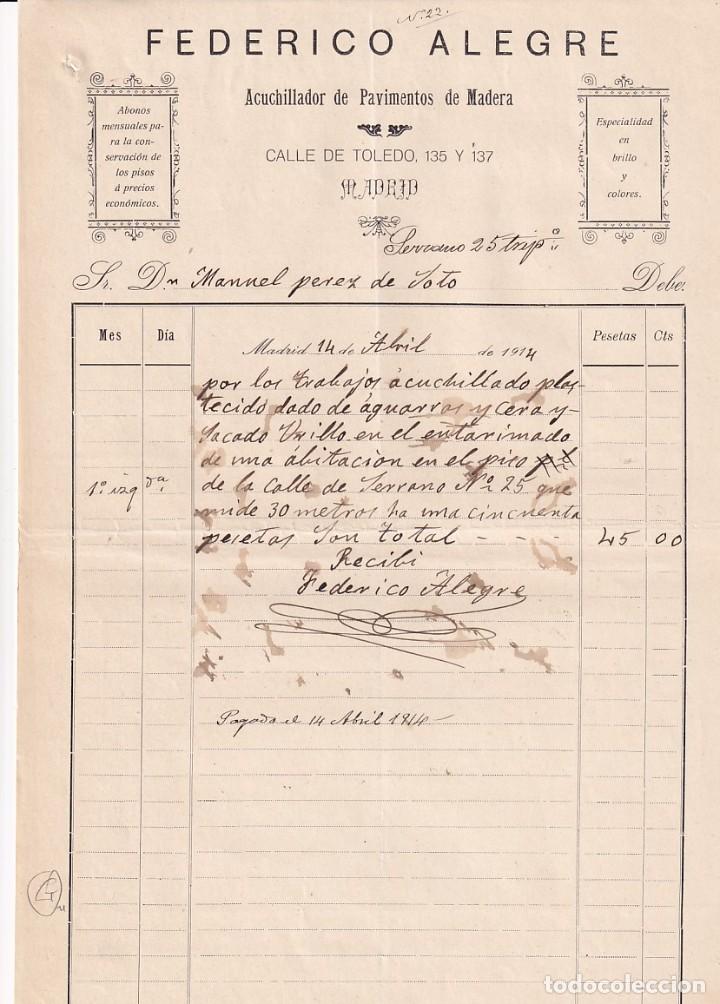 Nº 22.
FEDERICO ALEGRE
Acuchillador de Pavimentos de Madera
CALLE DE TOLEDO, 135 Y 137
MADRID
Abonos
mensuales pa-
ra la con-
servación de
los pisos
á precios
económicos.
Especialidad
en
brillo
y
colores.
Serrano 25 tripº
Sr. Dn Manuel perez de Soto Debe:
Mes Día Pesetas Cts
Madrid 14 de Abril de 1914
por los trabajos acuchillado plas-
tecido dado de aguarras y cera y-
sacado vrillo en el entarimado
de una abitacion en el piso
1º izq da. de la calle de Serrano Nº 25 que
mide 30 metros ha una cincuenta
pesetas Son total - - - 45 00
Recibi
Federico Alegre
Pagada el 14 Abril 1914-
todocoleccion